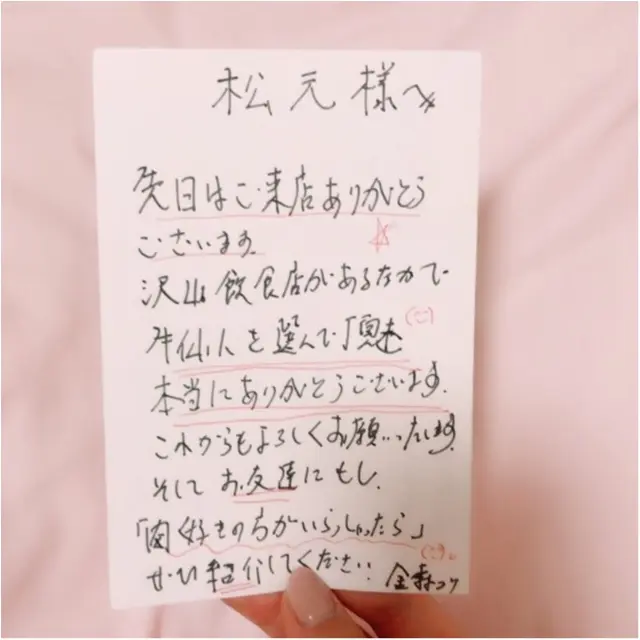 松元様へ
先日はご来店ありがとう
ございます。
沢山飲食店があるなかで
牛仙人を選んで頂き
本当にありがとうございます。
これからもよろしくお願いいたします。
そして お友達にもし、
「肉好きの方がいらっしゃったら」
ぜひ紹介してください!
金森